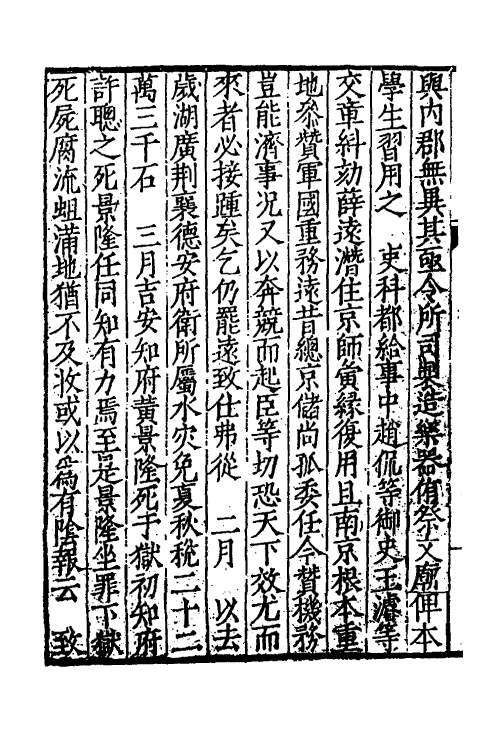 與内郡無異其亟令所司製造樂器備祭文廟俾本
學生習用之　吏科都給事中趙侃等御史王濬等
交章糾劾薛遠潛住京師夤緣復用且南京根本重
地叅贊軍國重務遠昔總京儲尚孤委任今贊機務
豈能濟事况又以奔競而起臣等切恐天下效尤而
來者必接踵矣乞仍罷遠致仕弗從　二月　以去
歲湖廣荆襄德安府衛所屬水灾免夏秋稅二十二
萬三千石　三月吉安知府黄景隆死于獄初知府
許聰之死景隆任同知有力焉至是景隆坐罪下獄
死屍腐流蛆滿地猶不及收或以爲有陰報云　致